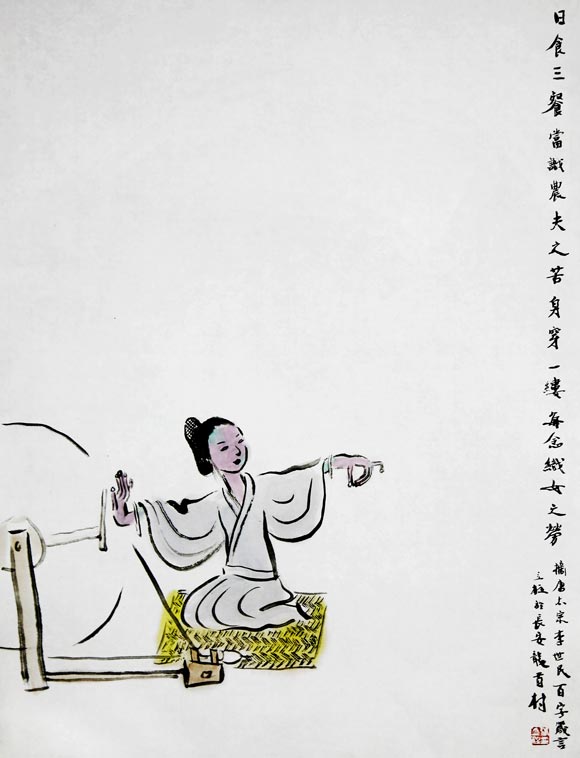 日食三餐當識農夫之苦身穿一縷每念織女之勞
摘唐太宗李世民百字箴言
於長安龍首村